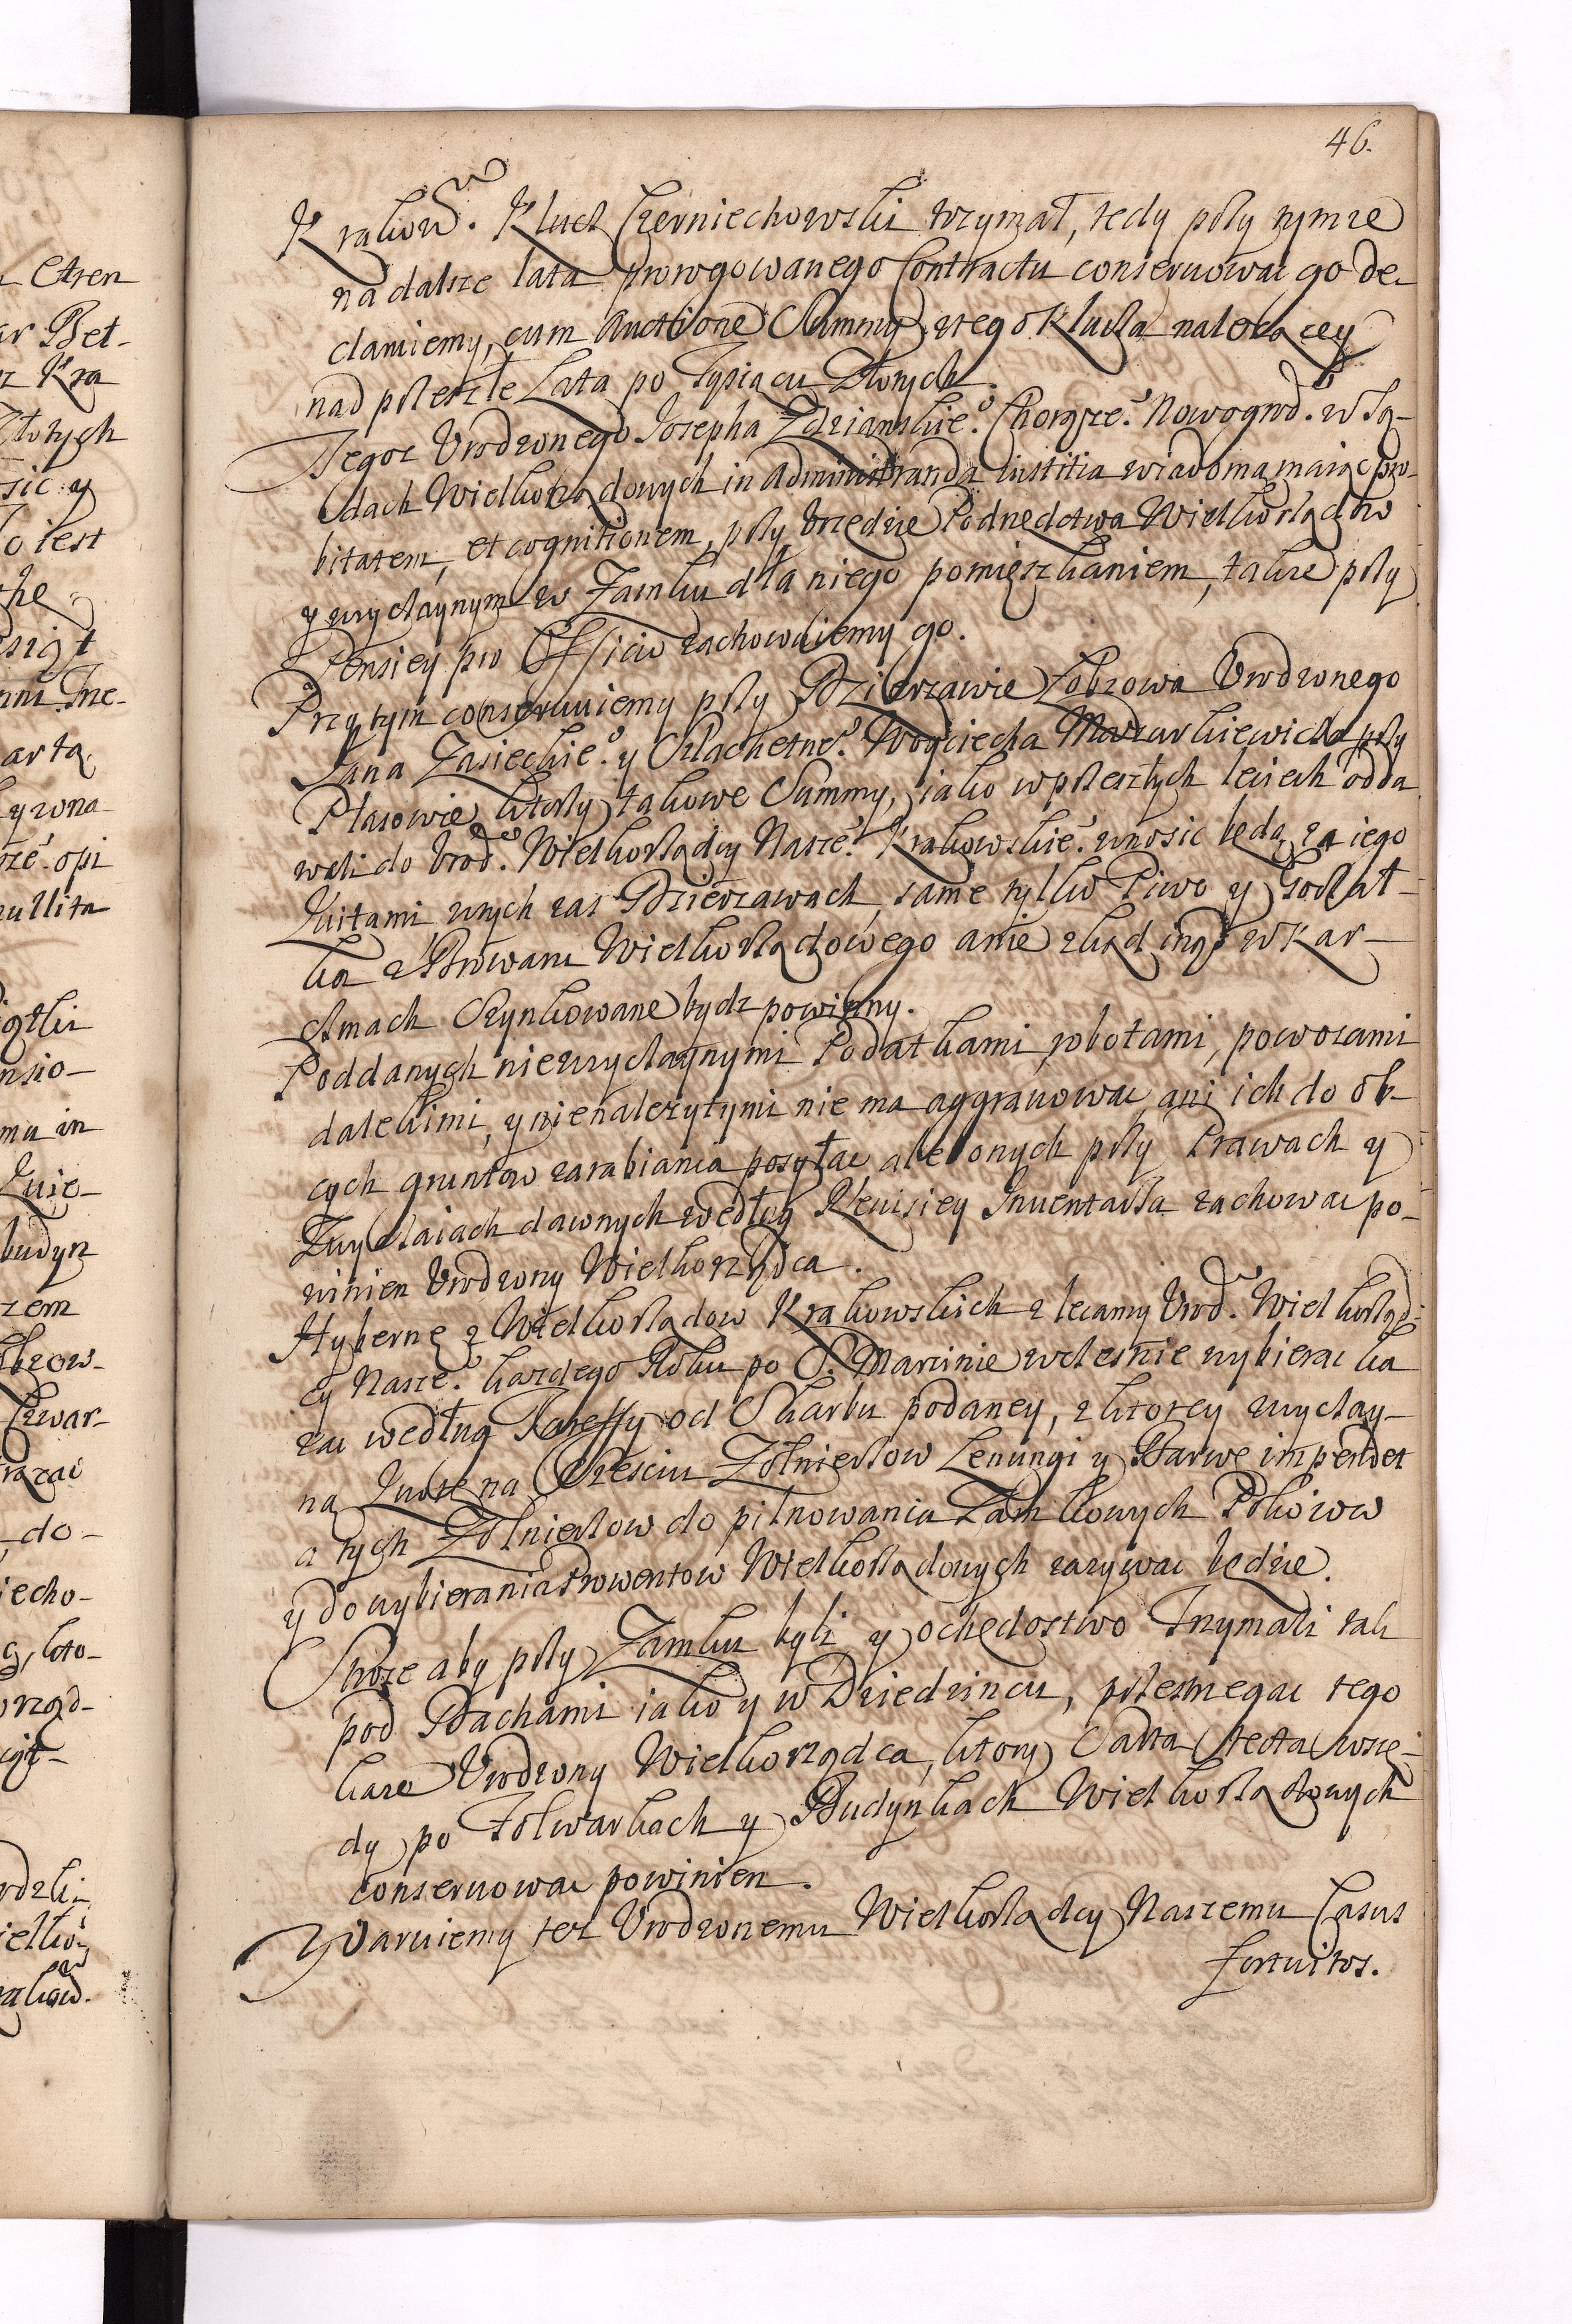 46.
Krakow. Klucz Czerniechowski trzymał, tedy przy tymze
na dalsze lata prorogowanego Contractu conseruowac go de-
claruiemy, cum Auctione Summy z tego Klucza nalezącey
nad przeszłe Lata po Tysiącu Złotych.
Tegoz Urodzonego Josepha Zdzianskie.º Chorąże.º Nowogrod. w Są-
dach Wielkorządowych in Administranda iustitia wiadomą maiąc pro-
bitatem, et cognitionem, przy Urzędzie Podrzęctwa Wielkorządow
y zwyczaynym w Zamku dla niego pomięszkaniem, także przy
Pensiey pro Officio zachowuiemy go.
Przy tym conseruuiemy przy Dzierzawie Łobzowa Urodzonego
Jana Zasieckie.º y Szlachetne.º Woyciecha Mazurkiewicza przy
Płasowie ktorzy takowe Summy, iako w przeszłych leciech odda
wali do Urod. Wielkorządcy Nasze.º Krakowskie.º wnosic będą za iego
Kwitami w tych zas Dzierzawach, same tylko Piwo y Gorzał-
ka z Browaru Wielkorządowego a nie zkąd inąd w Kar-
czmach szynkowane bydz powinny.
Poddanych niezwyczaynymi Podatkami, robotami, powozami
dalekimi, y nienalezytymi nie ma aggrauowac, ani ich do ob-
cych gruntow zarabiania posyłac ale onych przy Prawach y
Zwyczaiach dawnych według Rewisiey Inwentarza zachowac po-
winien Urodzony Wielkorządca.
Hybernę z Wielkorządow Krakowskich zlecamy Urod. Wielkorząd-
cy Nasze.º kazdego Roku po S. Marcinie wczesnie wybierac ka
zac według Tareffy od Skarbu podaney, z ktorey zwyczay-
na Kwotę na Szesciu Żołnierzow Lenungi y Barwę impendet
a tych Żołnierzow do pilnowania Zamkowych Pokoiow
y do wybierania Prowentow Wielkorządowych zazywac będzie.
Stroze aby przy Zamku byli y ochędostwo trzymali tak
pod Dachami iako y w Dziedzincu, przestrzegac tego
kaze Urodzony Wielkorządca, ktory Sarta tecta wszę-
dy po Folwarkach y Budynkach Wielkorządowych
conseruowac powinien.
Waruiemy tez Urodzonemu Wielkorządcy Naszemu Casus
fortuitos.